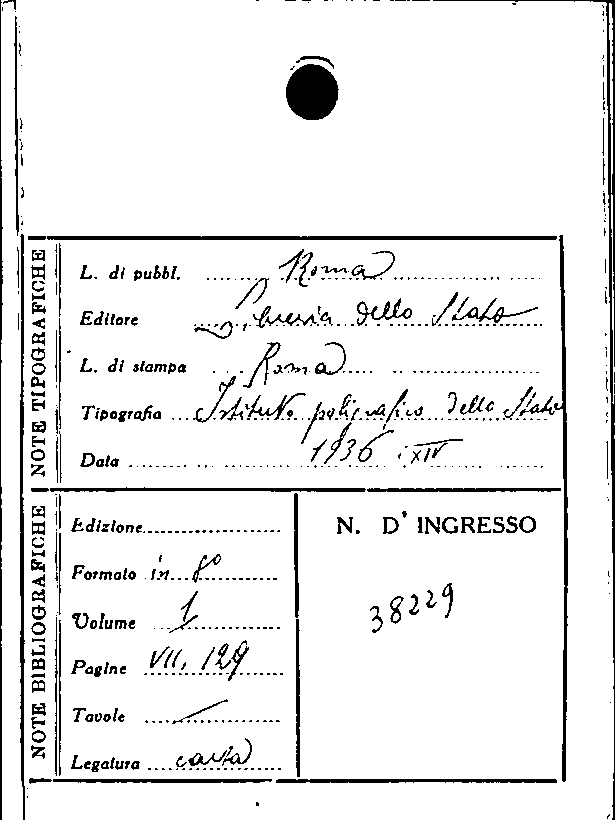 NOTE TIPOGRAFICHE
L. di pubbl. Roma
Editore Libreria dello Stato
L. di stampa Roma
Tipografia Istituto poligrafico dello Stato
Data 1936 : XIV
NOTE BIBLIOGRAFICHE
Edizione
Formato in 8º
Volume 1
Pagine VII, 129
Tavole —
Legatura carta
N. D' INGRESSO
38229